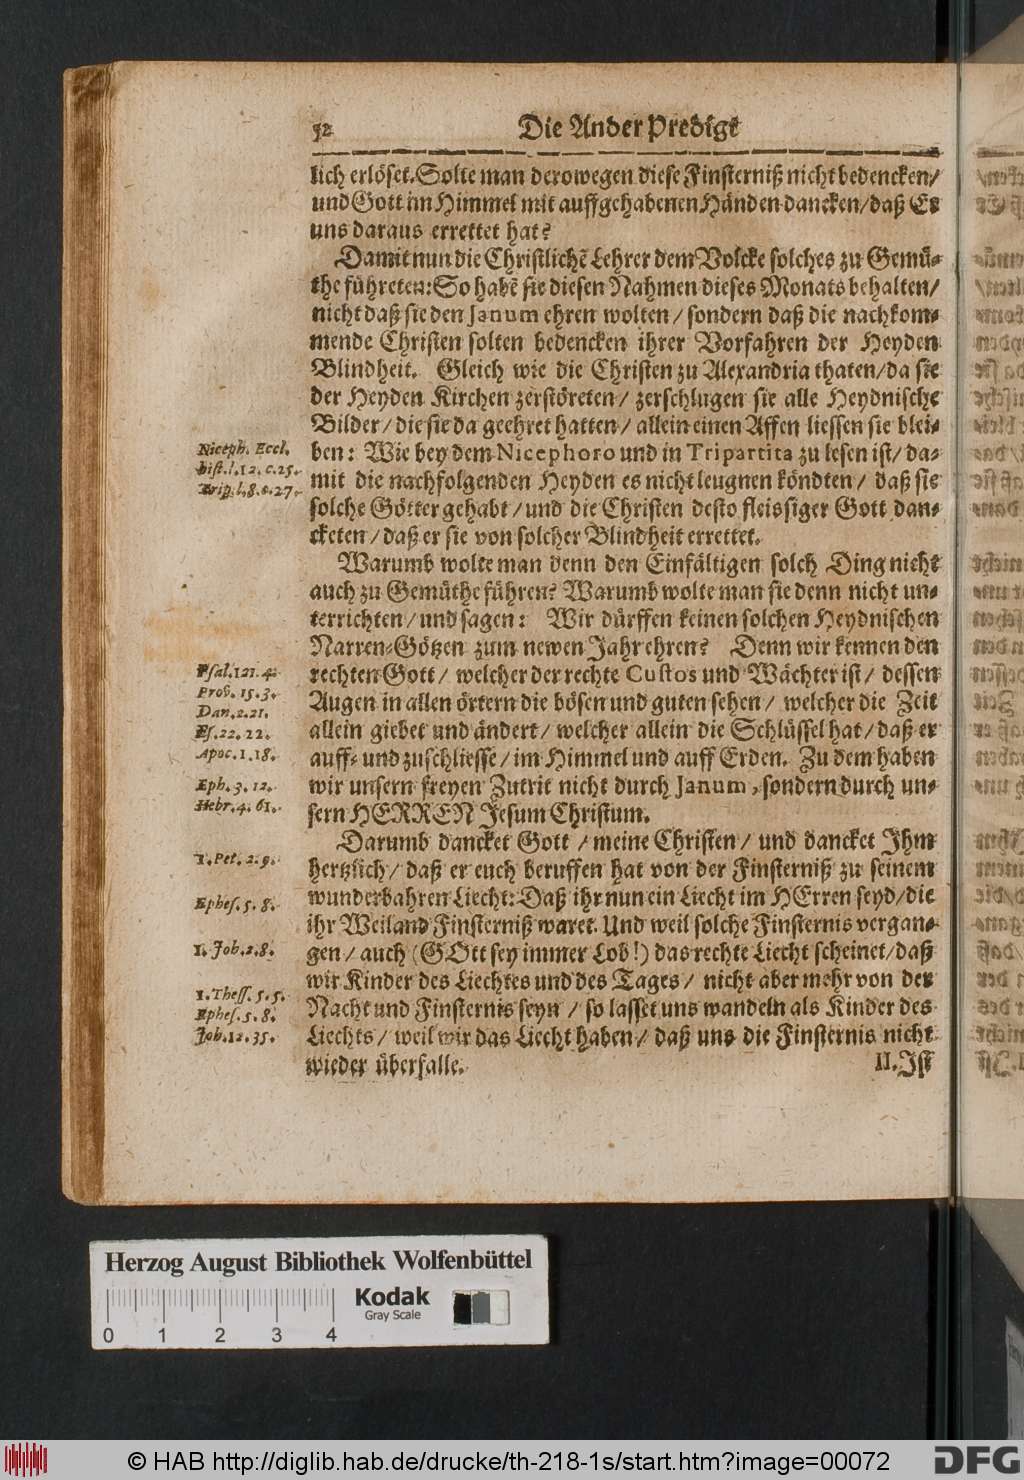 52 Die Ander Predigt
lich erlöset. Solte man derowegen diese Finsterniß nicht bedencken/
und Gott im Himmel mit auffgehabenen Händen dancken/ daß Er
uns daraus errettet hat?
Damit nun die Christlichẽ Lehrer dem Volcke solches zu Gemü-
the führeten: So habẽ sie diesen Nahmen dieses Monats behalten/
nicht daß sie den Janum ehren wolten/ sondern daß die nachkom-
mende Christen solten bedencken ihrer Vorfahren der Heyden
Blindheit. Gleich wie die Christen zu Alexandria thaten/ da sie
der Heyden Kirchen zerstöreten/ zerschlugen sie alle Heydnische
Bilder/ die sie da geehret hatten/ allein einen Affen liessen sie blei-
Niceph. Eccl.
ben: Wie bey dem Nicephoro und in Tripartita zu lesen ist/ da-
hist. l. 12. c. 25.
mit die nachfolgenden Heyden es nicht leugnen köndten/ daß sie
Trip. l. 8. c. 27.
solche Götter gehabt/ und die Christen desto fleissiger Gott dan-
cketen/ daß er sie von solcher Blindheit errettet.
Warumb wolte man denn den Einfältigen solch Ding nicht
auch zu Gemüthe führen? Warumb wolte man sie denn nicht un-
terrichten/ und sagen: Wir dürffen keinen solchen Heydnischen
Narren-Götzen zum newen Jahr ehren? Denn wir kennen den
Psal. 121. 4.
rechten Gott/ welcher der rechte Custos und Wächter ist/ dessen
Prov. 15. 3.
Augen in allen örtern die bösen und guten sehen/ welcher die Zeit
Dan. 2. 21.
allein giebet und ändert/ welcher allein die Schlüssel hat/ daß er
Es. 22. 22.
Apoc. 1. 18.
auff- und zuschliesse/ im Himmel und auff Erden. Zu dem haben
Eph. 3. 12.
wir unsern freyen Zutrit nicht durch Janum, sondern durch un-
Hebr. 4. 61.
sern HERREN Jesum Christum.
Darumb dancket Gott/ meine Christen/ und dancket Ihm
1. Pet. 2. 9.
hertzlich/ daß er euch beruffen hat von der Finsterniß zu seinem
wunderbahren Liecht: Daß ihr nun ein Liecht im HErren seyd/ die
Ephes. 5. 8.
ihr Weiland Finsterniß waret. Und weil solche Finsternis vergan-
1. Joh. 2. 8.
gen/ auch (GOtt sey immer Lob!) das rechte Liecht scheinet/ daß
wir Kinder des Liechtes und des Tages/ nicht aber mehr von der
1. Thess. 5. 5.
Nacht und Finsternis seyn/ so lasset uns wandeln als Kinder des
Ephes. 5. 8.
Liechts/ weil wir das Liecht haben/ daß uns die Finsternis nicht
Joh. 12. 35.
wieder überfalle.
II. Ist
Herzog August Bibliothek Wolfenbüttel
Kodak
Gray Scale
0 1 2 3 4
© HAB http://diglib.hab.de/drucke/th-218-1s/start.htm?image=00072
DFG